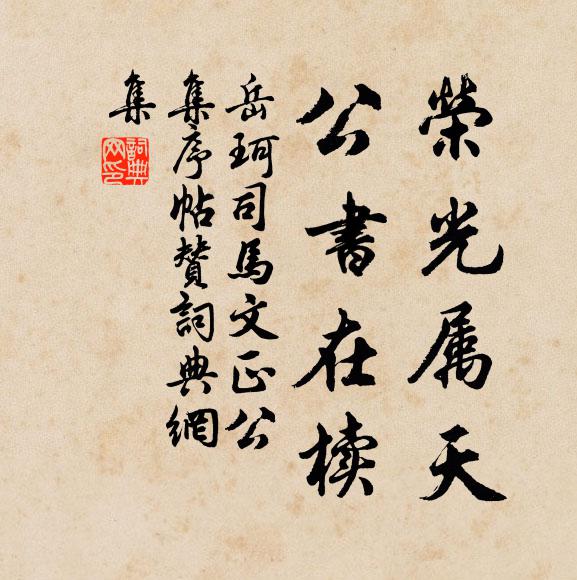 榮光属天
公書在椟
岳珂司馬文正公
集序帖賛詞典網
集
詞典網印